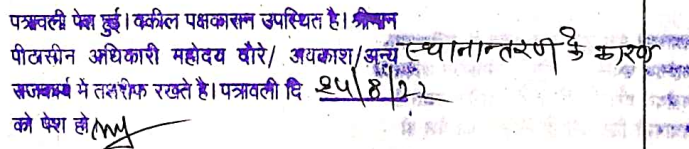 पत्रावली पेश हुई। वकील पक्षकारान उपस्थित है। श्रीमान
पीठासीन अधिकारी महोदय दौरे/ अवकाश/अन्य स्थानान्तरण के कारण
राजकार्य में तशरीफ रखते है। पत्रावली दि 25/8/22
को पेश हो